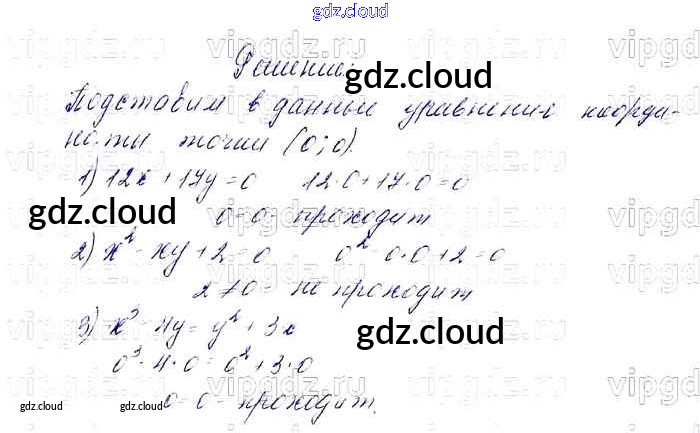 gdz.cloud
Решение:
gdz.cloud
Подставим в данные уравнения коорди-
наты точки (0; 0).
1) 12x + 17y = 0   12·0 + 17·0 = 0
gdz.cloud
0 = 0 - проходит
2) x² - xy + 2 = 0   0² - 0·0 + 2 = 0
2 ≠ 0 - не проходит
3) x³ - 4y = y² + 3x
gdz.cloud
0³ - 4·0 = 0² + 3·0
gdz.cloud gdz.cloud 0 = 0 - проходит.